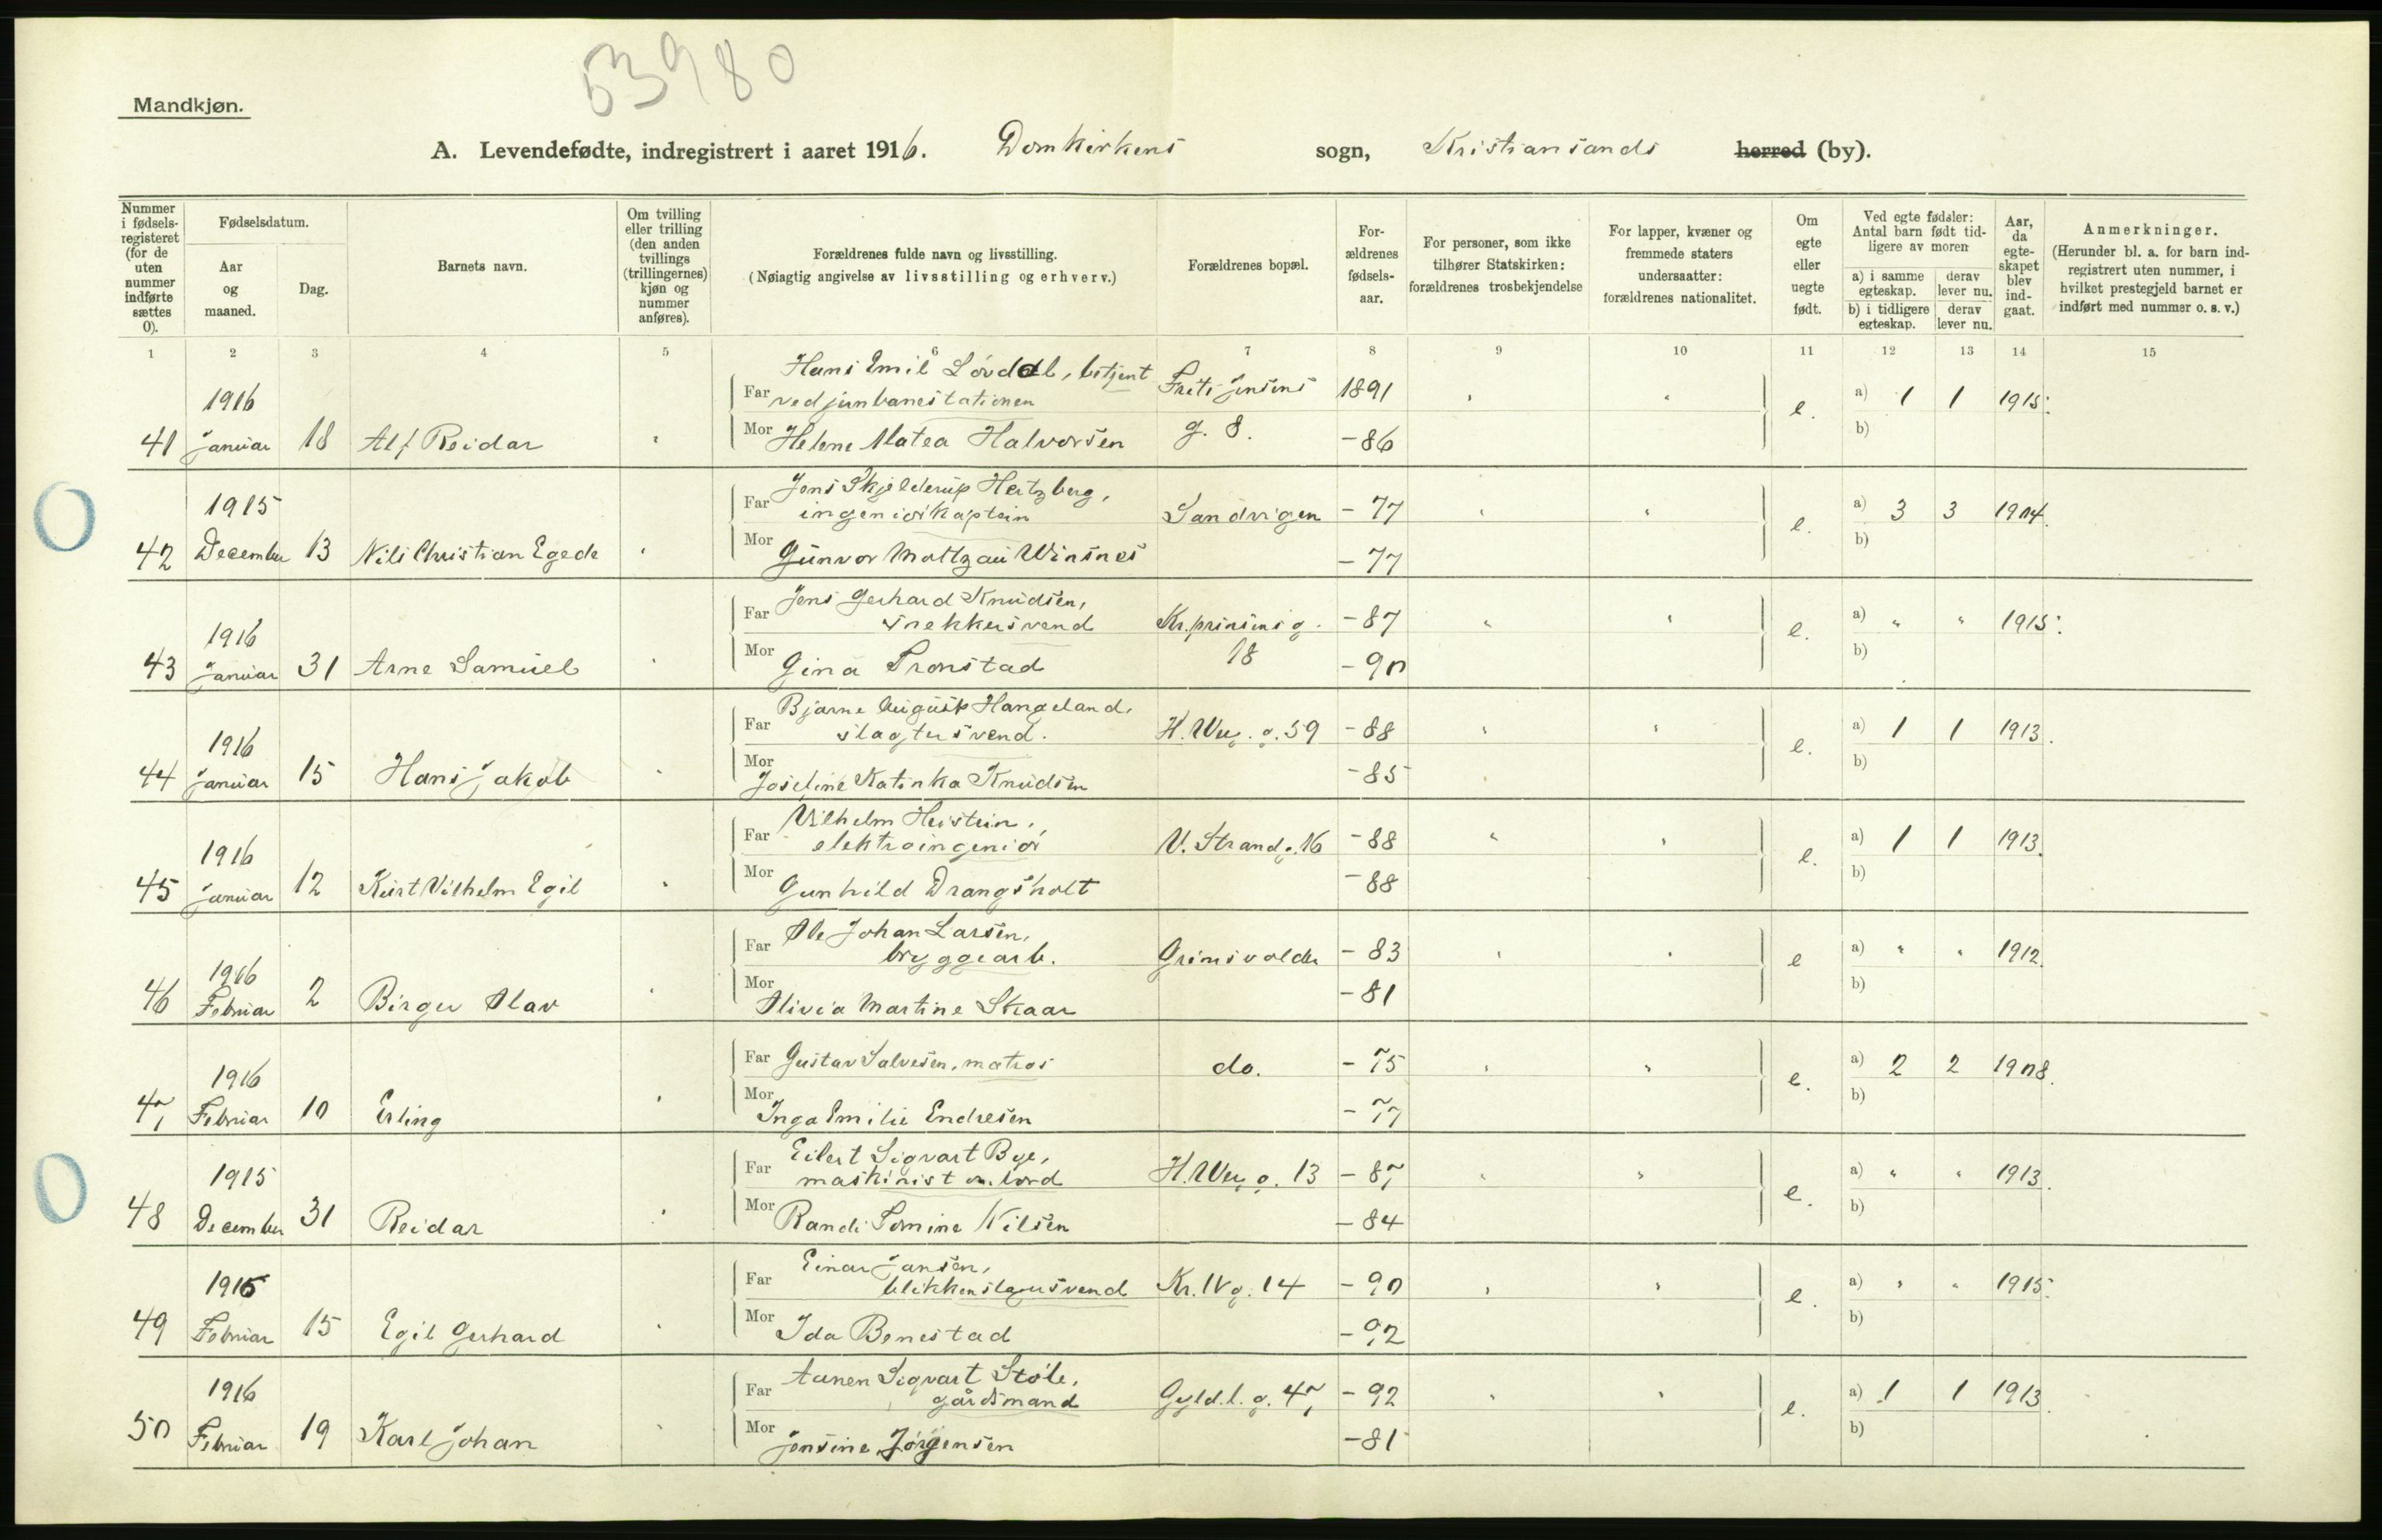 53980
Mandkjøn.
A. Levendefødte, indregistrert i aaret 1916. Domkirkens sogn, Kristiansands herred (by).
Nummer i fødsels-registeret (for de uten nummer indførte sættes 0).
Fødselsdatum.
Aar og maaned.
Dag.
Barnets navn.
Om tvilling eller trilling (den anden tvillings (trillingernes) kjøn og nummer anføres).
Forældrenes fulde navn og livsstilling.
(Nøiagtig angivelse av livsstilling og erhverv.)
Forældrenes bopæl.
For-ældrenes fødsels-aar.
For personer, som ikke tilhører Statskirken: forældrenes trosbekjendelse
For lapper, kvæner og fremmede staters undersaatter: forældrenes nationalitet.
Om egte eller uegte født.
Ved egte fødsler: Antal barn født tid-ligere av moren
a) i samme egteskap.
derav lever nu.
b) i tidligere egteskap.
derav lever nu.
Aar, da egte-skapet blev ind-gaat.
Anmerkninger.
(Herunder bl. a. for barn ind-registrert uten nummer, i hvilket prestegjeld barnet er indført med nummer o. s. v.)
1 2 3 4 5 6 7 8 9 10 11 12 13 14 15
Hans Emil Løvdal, betjent
1916 Far ved jernbanestationen Frets Jensens 1891 e. a) 1 1 1915.
41 Januar 18 Alf Reidar Mor Helene Matea Halvorsen g. 8. -86 b)
Jens Skjelderup Hertzberg,
1915 Far ingeniørkaptein Sandvigen -77 e. a) 3 3 1904.
42 December 13 Nils Christian Egede Mor Gunvor Moltzau Winsnes -77 b)
Jens Gerhard Knudsen,
1916 Far snekkersvend Kr.prinsens g. -87 e. a) " " 1915.
43 Januar 31 Arne Samuel Mor Gina Tronstad 18 -90 b)
Bjarne August Hangeland,
1916 Far slagtersvend. H. Werg. g. 59 -88 e. a) 1 1 1913.
44 Januar 15 Hans Jakob Mor Joseline Katinka Knudsen -85 b)
Vilhelm Heistein,
1916 Far elektroingeniør V. Strandg. 16 -88 e. a) 1 1 1913.
45 Januar 12 Kurt Vilhelm Egil Mor Gunhild Drangsholt -88 b)
Ole Johan Larsen,
1916 Far bryggearb. Grimsvolden -83 e a) " " 1912.
46 Februar 2 Birger Olav Mor Olivia Martine Skaar -81 b)
1916 Far Gustav Salvesen, matros do. -75 e. a) 2 2 1908.
47 Februar 10 Erling Mor Inga Emilie Endresen -77 b)
Eilert Sigvart Bye,
1915 Far maskinist om bord H. Werg. g. 13 -87 e. a) " " 1913.
48 December 31 Reidar Mor Randi Tomine Nilsen -84 b)
Einar Jansen,
1916 Far blikkenslagersvend Kr. IV g. 14 -90 e. a) " " 1915.
49 Februar 15 Egil Gerhard Mor Ida Benestad -92 b)
Aanen Sigvart Støle,
1916 Far gårdsmand Gyld.l. g. 47 -92 e. a) 1 1 1913.
50 Februar 19 Karl Johan Mor Jensine Jørgensen -81 b)